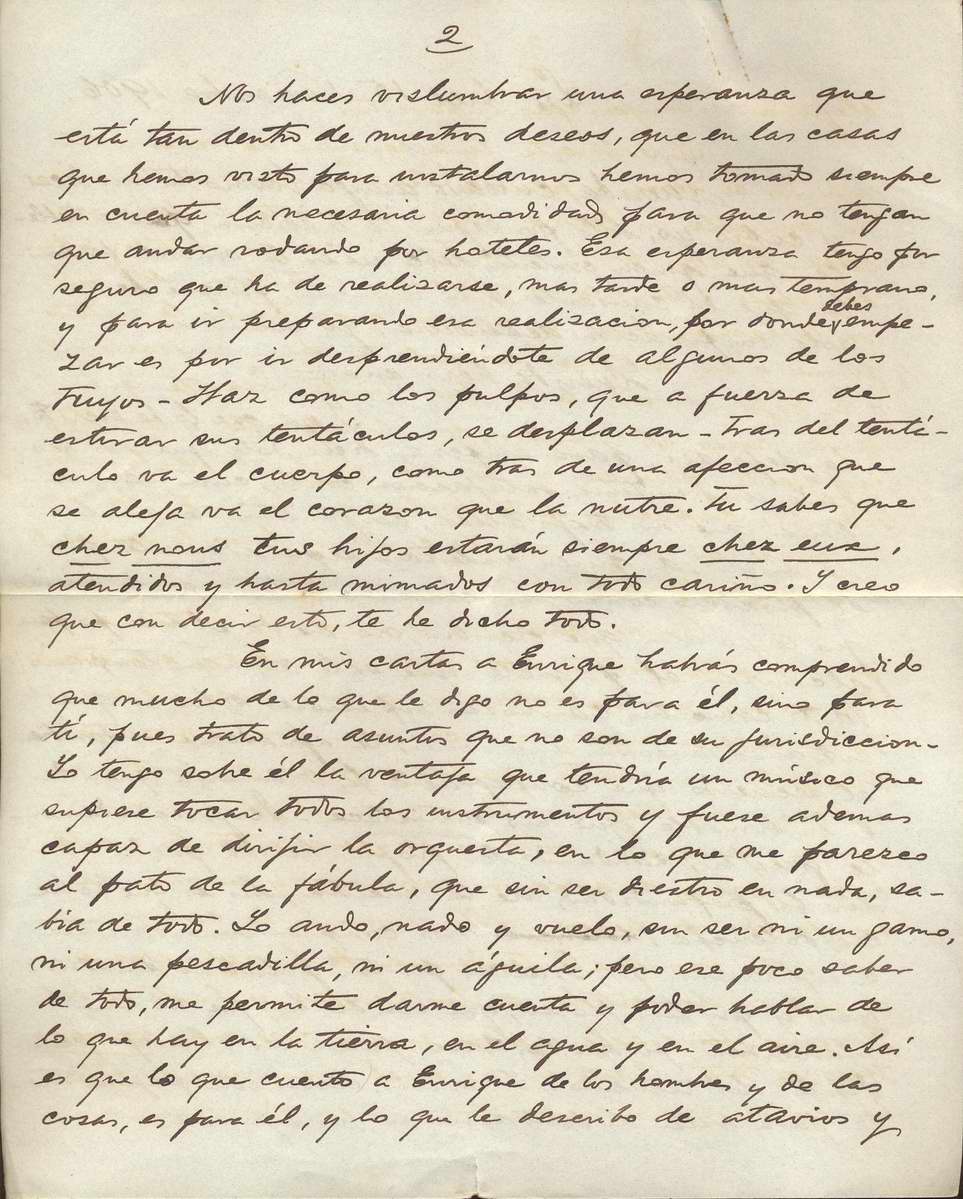 2
Nos haces vislumbrar una esperanza que
está tan dentro de nuestros deseos, que en las casas
que hemos visto para instalarnos hemos tomado siempre
en cuenta la necesaria comodidad, para que no tengan
que andar rodando por hoteles. Esa esperanza tengo por
seguro que ha de realizarse, mas tarde o mas temprano,
y para ir preparando esa realizacion, por donde debes empe-
zar es por ir desprendiéndote de algunos de los
tuyos - Haz como los pulpos, que a fuerza de
estirar sus tentáculos, se desplazan - Tras del tentá-
culo va el cuerpo, como tras de una afeccion que
se aleja va el corazon que la nutre. Tu sabes que
chez nous tus hijos estarán siempre chez eux,
atendidos y hasta mimados con todo cariño. Y creo
que con decir esto, te he dicho todo.
En mis cartas a Enrique habrás comprendido
que mucho de lo que le digo no es para él, sino para
tí, pues trato de asuntos que no son de su jurisdiccion -
Yo tengo sobre él la ventaja que tendría un músico que
supiese tocar todos los instrumentos y fuese ademas
capaz de dirijir la orquesta, en lo que me parezco
al pato de la fábula, que sin ser diestro en nada, sa-
bia de todo. Yo ando, nado y vuelo, sin ser ni un gamo,
ni una pescadilla, ni un águila; pero ese poco saber
de todo, me permite darme cuenta y poder hablar de
lo que hay en la tierra, en el agua y en el aire. Así
es que lo que cuento a Enrique de los hombres y de las
cosas, es para él, y lo que le describo de atavios y